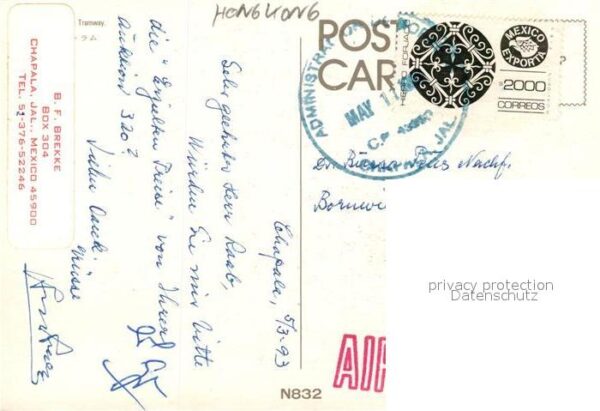 HONGKONG
Tramway.
B. F. BREKKE
BOX 304
CHAPALA, JAL., MEXICO 45900
TEL. 52-376-52246
Chapala, 5/3-93
Sehr geehrter Herr Raab,
Würden Sie mir bitte
die "Erzielten Preise" von Ihrer
Auktion 320?
Vielen Dank.
Grüsse
POST
CARD
ADMINISTRA
MAY
C.P. 45900
JAL
MEXICO
EXPORTA
$2000
CORREOS
Nachf.
P
AIR
N832
privacy protection
Datenschutz